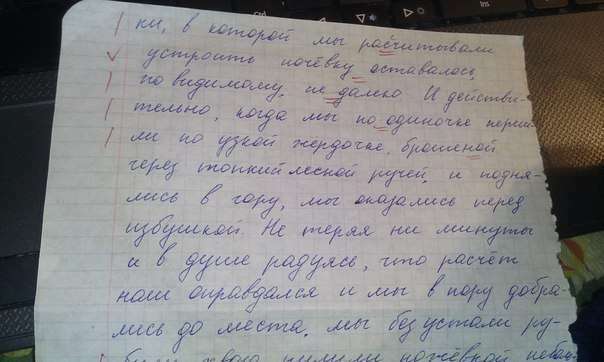 ки, в которой мы расчитывали
устроить ночёвку оставалось,
по видимому, не далеко И действи-
тельно, когда мы по одиночке переш-
ли по узкой жердочке, брошеной
через топкий лесной ручей, и подня-
лись в гору, мы оказались перед
избушкой. Не теряя ни минуты
и в душе радуясь, что расчёт
наш оправдался и мы в пору добра-
лись до места, мы без устали ру-